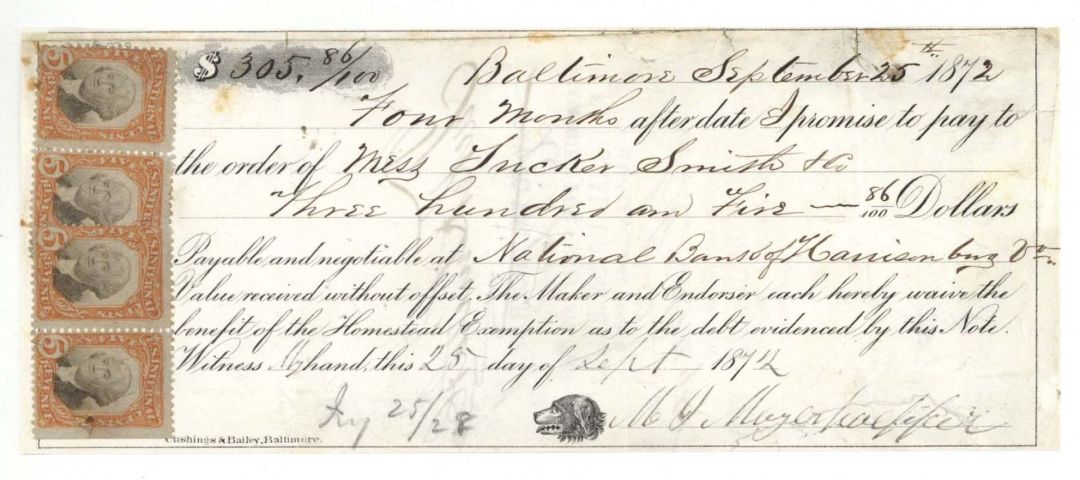 $ 305. 86/100 Baltimore September 25th 1872
Four Months after date I promise to pay to
the order of Mess Tucker Smith & Co
Three hundred and Five — 86/100 Dollars
Payable and negotiable at National Bank of Harrisonburg Va
Value received without offset. The Maker and Endorser each hereby waive the
benefit of the Homestead Exemption as to the debt evidenced by this Note.
Witness My hand, this 25 day of Sept 1872
25/28
M
Cushings & Bailey, Baltimore.
FIVE CENTS
5
FIVE CENTS
5
FIVE CENTS
5
FIVE CENTS
5